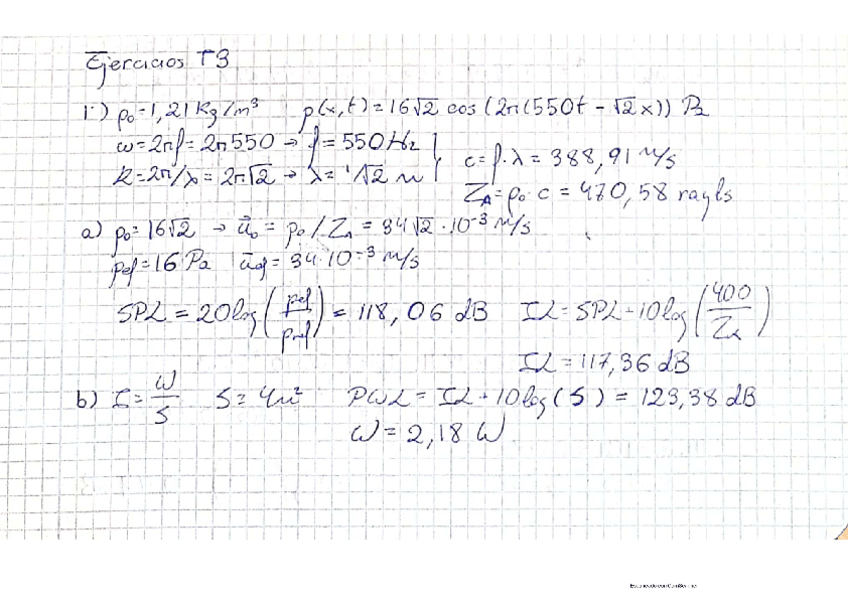 Ejercicios T3
1.) ρ₀=1,21 Kg/m³ p(x,t)=16√2 cos(2π(550t - √2x)) Pa
ω=2πf=2π550 → f=550Hz
k=2π/λ=2π√2 → λ=1/√2 m
c=f·λ=388,91 m/s
Z_A=ρ₀·c=470,58 rayls
a) p₀=16√2 → u₀=p₀/Z_A=34√2·10⁻³ m/s
pef=16 Pa uef=34·10⁻³ m/s
SPL=20log(pef/pref)=118,06 dB IL=SPL+10log(400/Z_A)
IL=117,36 dB
b) I=W/S S=4m² PWL=IL+10log(S)=123,38 dB
W=2,18 W
Escaneado con CamScanner